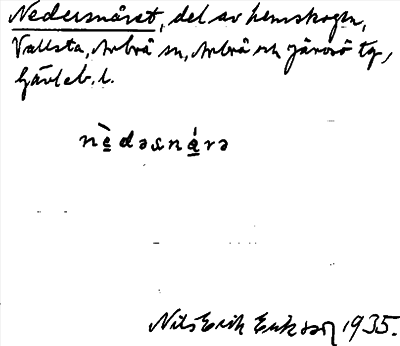 Nedersnåret, del av hemskogen,
Vallsta, Arbrå sn, Arbrå och Järvsö tg,
Gävleb. l.
nèdəsnárə
Nils Erik Eriksson 1935.